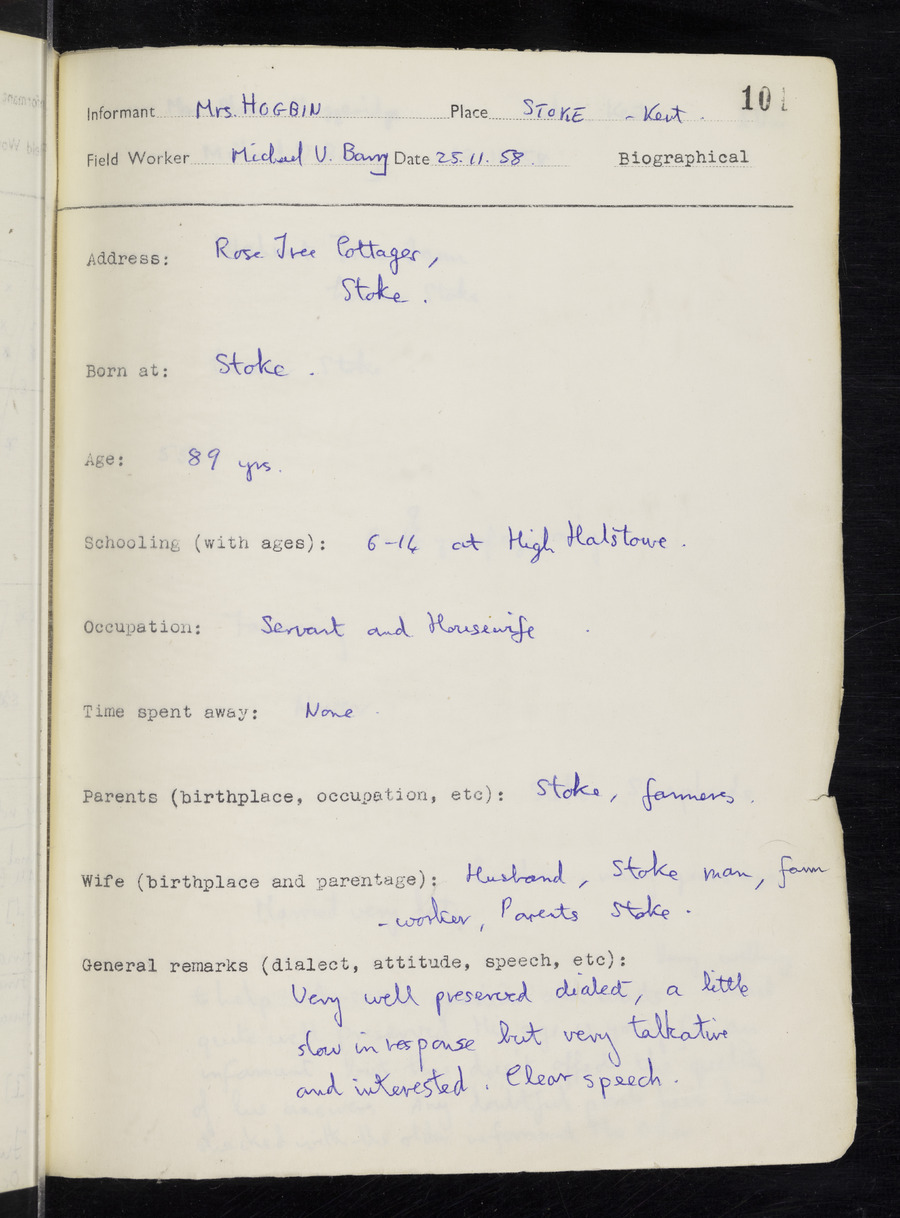 101
Informant Mrs. HOGBIN Place STOKE - Kent.
Field Worker Michael V. Barry Date 25.11.58. Biographical
Address: Rose Tree Cottages,
Stoke.
Born at: Stoke.
Age: 89 yrs.
Schooling (with ages): 6-14 at High Halstowe.
Occupation: Servant and Housewife.
Time spent away: None
Parents (birthplace, occupation, etc): Stoke, farmers.
Wife (birthplace and parentage): Husband, Stoke man, farm
-worker, Parents Stoke.
General remarks (dialect, attitude, speech, etc):
Very well preserved dialect, a little
slow in response but very talkative
and interested. Clear speech.